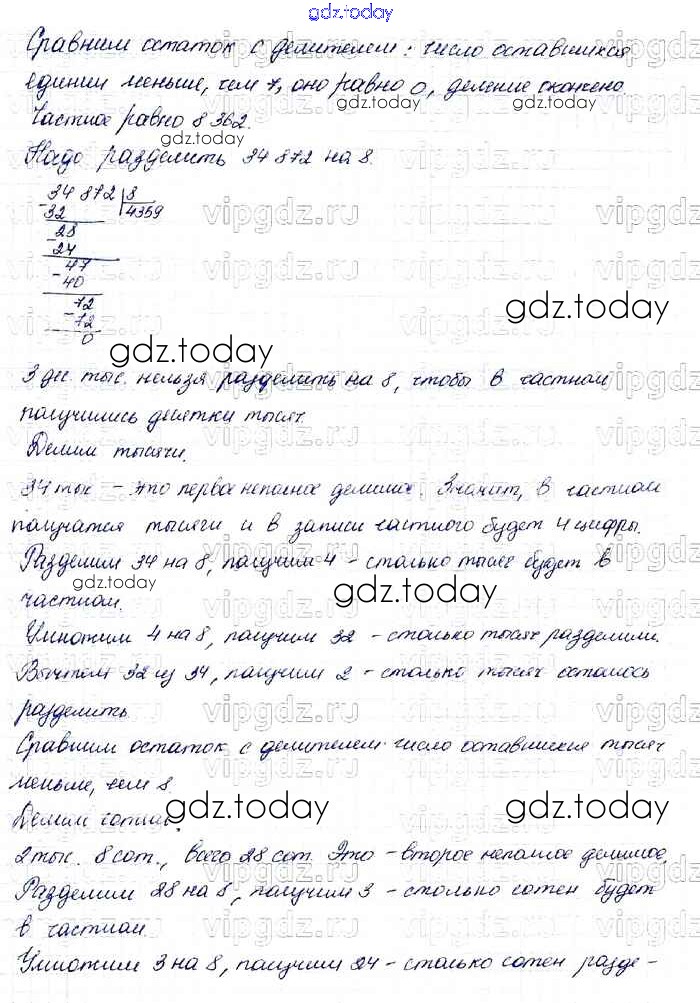 gdz.today
Сравним остаток с делителем: число оставшихся
единиц меньше, чем 7, оно равно 0, деление окончено.
Частное равно 8 362.
Надо разделить 34 872 на 8.
34 872 | 8
- 32 | 4359
28
- 24
47
- 40
72
- 72
0
3 дес. тыс. нельзя разделить на 8, чтобы в частном
получились десятки тысяч.
Делим тысячи.
34 тыс - это первое неполное делимое. Значит, в частном
получатся тысячи и в записи частного будет 4 цифры.
Разделим 34 на 8, получим 4 - столько тысяч будет в
частном.
Умножим 4 на 8, получим 32 - столько тысяч разделили.
Вычтем 32 из 34, получим 2 - столько тысяч осталось
разделить.
Сравним остаток с делителем: число оставшихся тысяч
меньше, чем 8.
Делим сотни.
2 тыс. 8 сот., всего 28 сот. Это - второе неполное делимое.
Разделим 28 на 8, получим 3 - столько сотен будет
в частном.
Умножим 3 на 8, получим 24 - столько сотен разде-